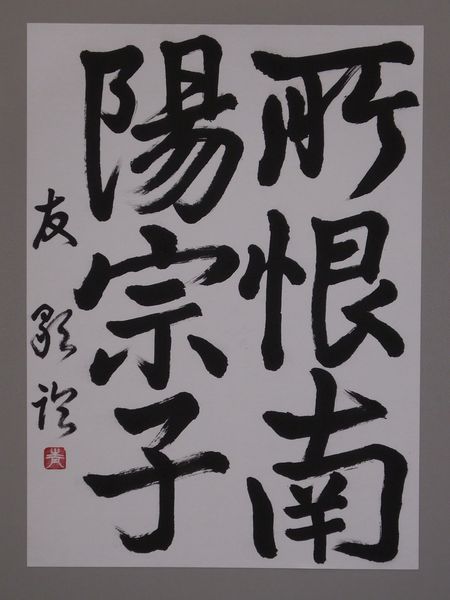 所恨南
陽宗子
友